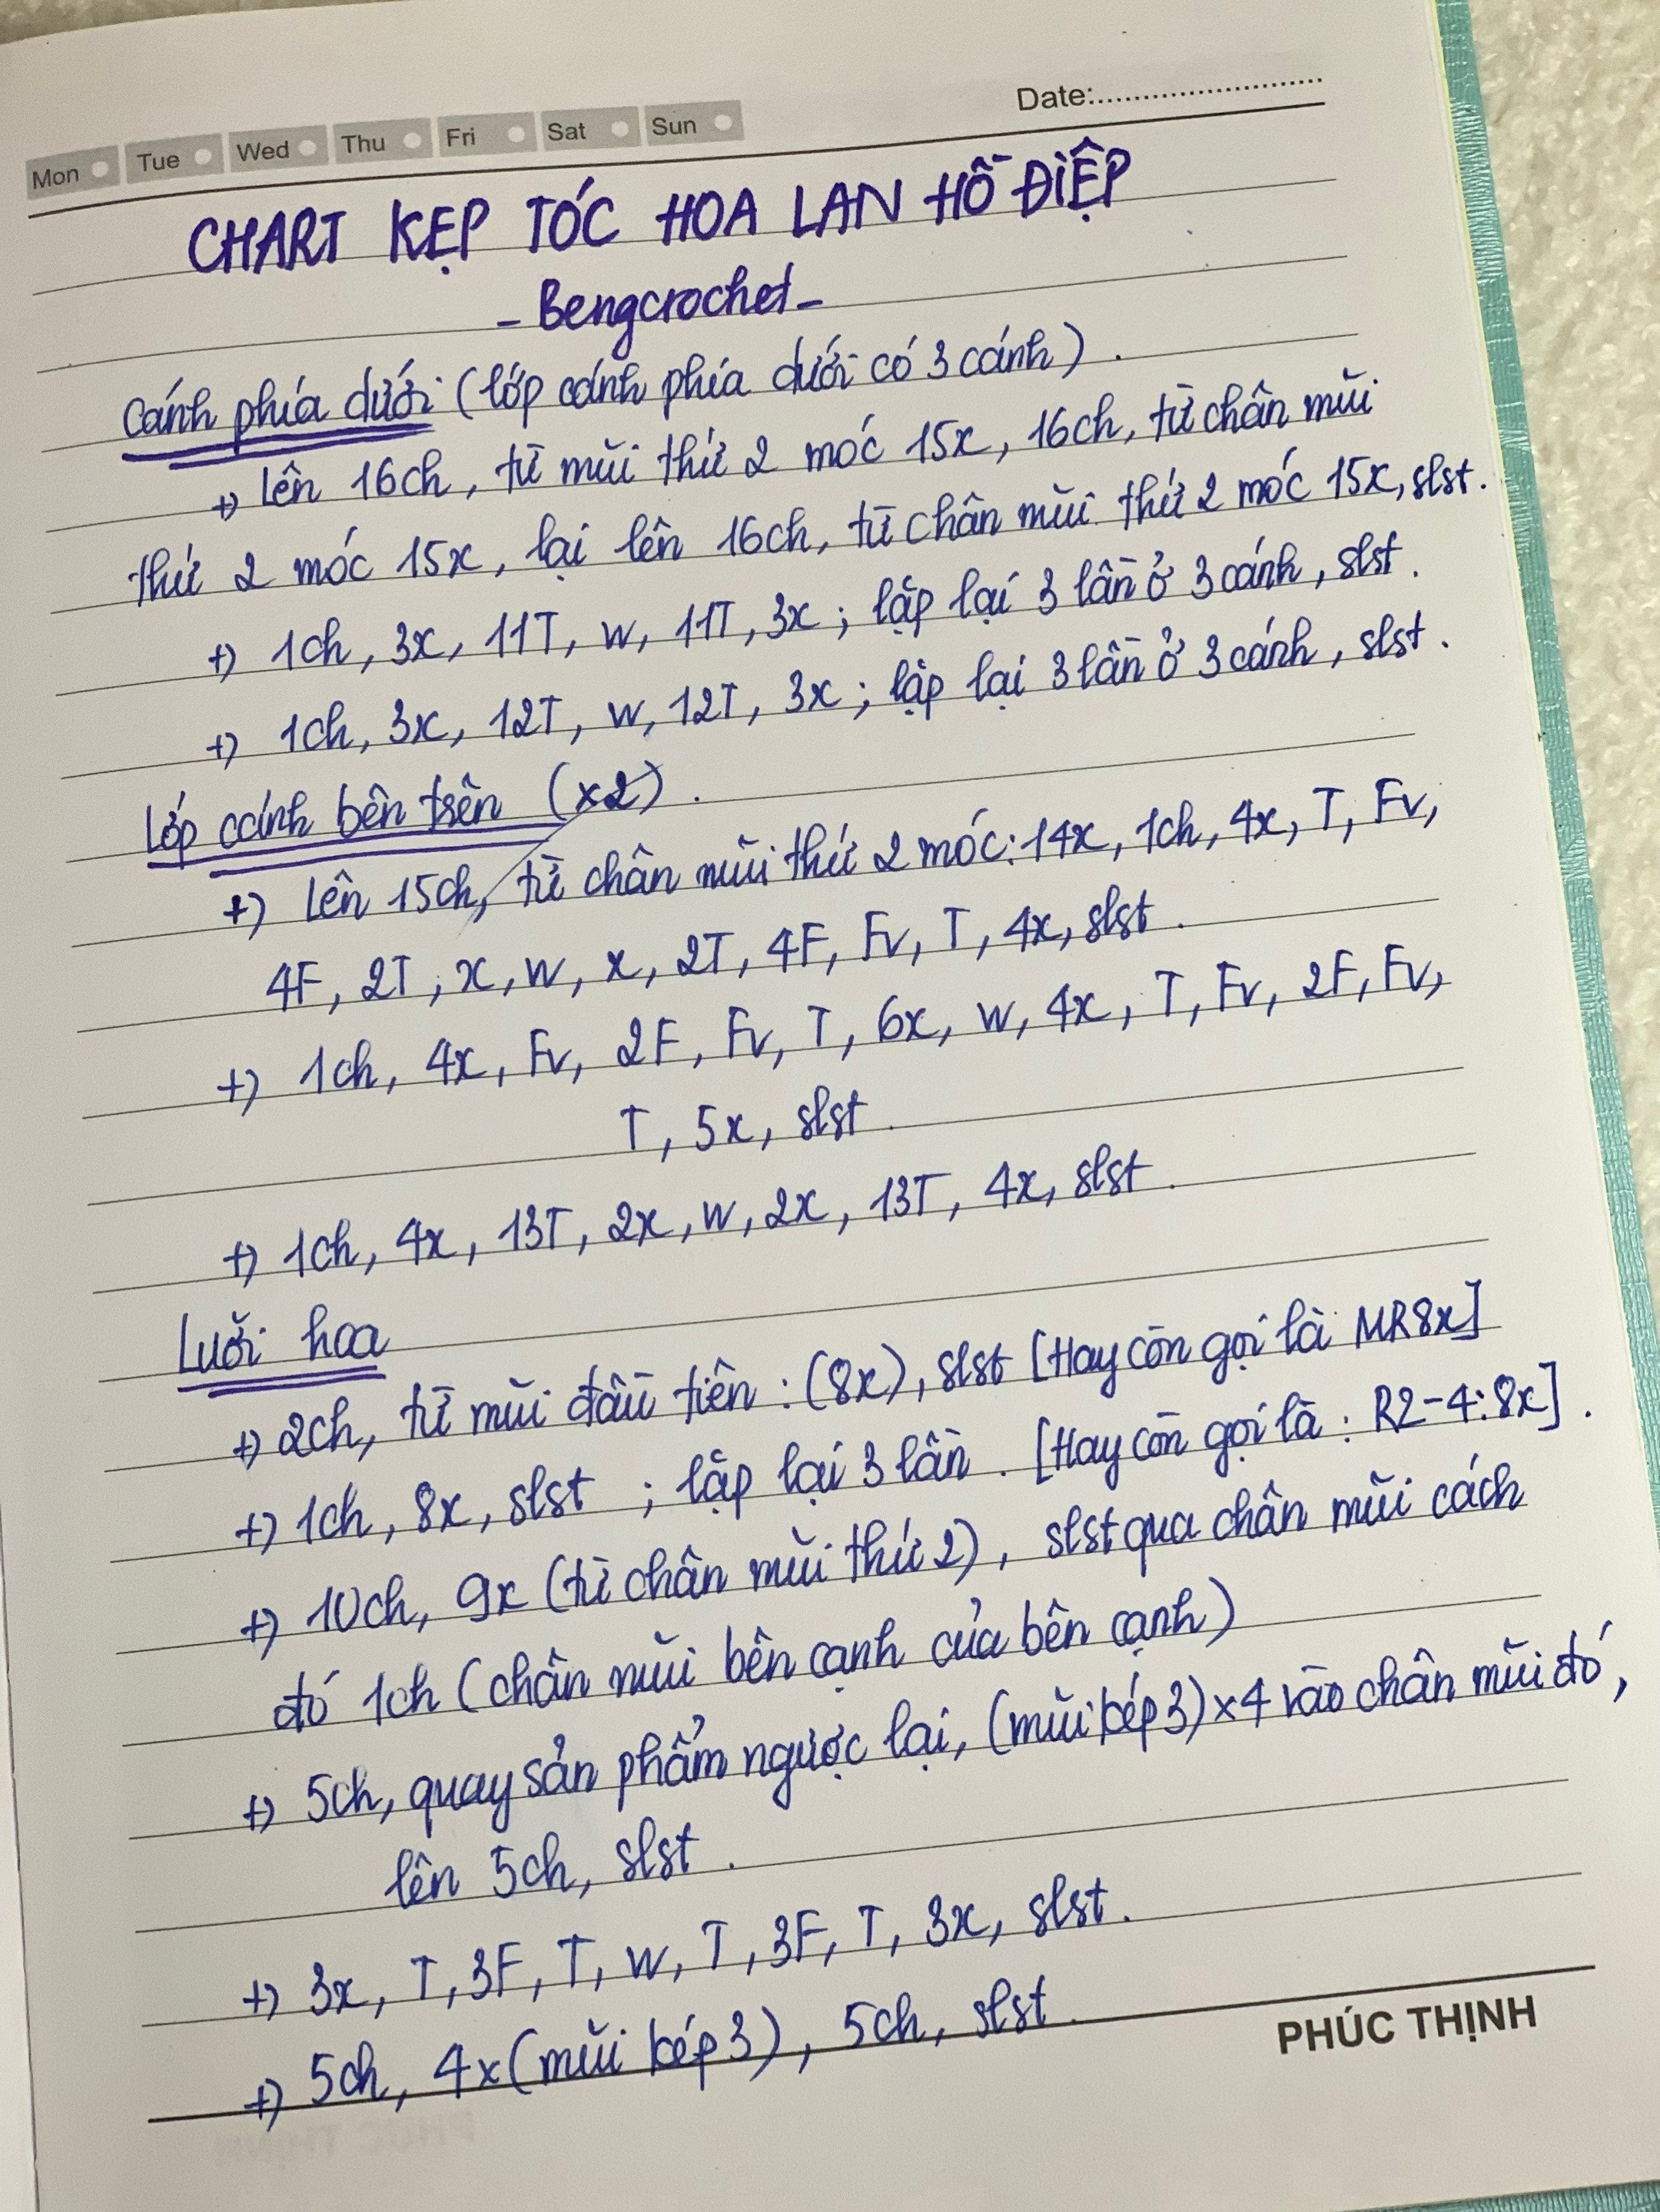 Mon Tue Wed Thu Fri Sat Sun Date:
CHART KẸP TÓC HOA LAN HỒ ĐIỆP
- Bengcrochet -
Cánh phía dưới (lớp cánh phía dưới có 3 cánh).
+) Lên 16ch, từ mũi thứ 2 móc 15x, 16ch, từ chân mũi
thứ 2 móc 15x, lại lên 16ch, từ chân mũi thứ 2 móc 15x, slst.
+) 1ch, 3x, 11T, w, 11T, 3x; lặp lại 3 lần ở 3 cánh, slst.
+) 1ch, 3x, 12T, w, 12T, 3x; lặp lại 3 lần ở 3 cánh, slst.
Lớp cánh bên trên (x2).
+) Lên 15ch, từ chân mũi thứ 2 móc: 14x, 1ch, 4x, T, Fv,
4F, 2T, x, w, x, 2T, 4F, Fv, T, 4x, slst.
+) 1ch, 4x, Fv, 2F, Fv, T, 6x, w, 4x, T, Fv, 2F, Fv,
T, 5x, slst.
+) 1ch, 4x, 13T, 2x, w, 2x, 13T, 4x, slst.
Lưỡi hoa
+) 2ch, từ mũi đầu tiên: (8x), slst [Hay còn gọi là MR8x]
+) 1ch, 8x, slst ; lặp lại 3 lần. [Hay còn gọi là: R2-4: 8x].
+) 10ch, 9x (từ chân mũi thứ 2), slst qua chân mũi cách
đó 1ch (chân mũi bên cạnh của bên cạnh)
+) 5ch, quay sản phẩm ngược lại, (mũi kép 3)x4 vào chân mũi đó,
lên 5ch, slst.
+) 3x, T, 3F, T, w, T, 3F, T, 3x, slst.
+) 5ch, 4x (mũi kép 3), 5ch, slst.
PHÚC THỊNH